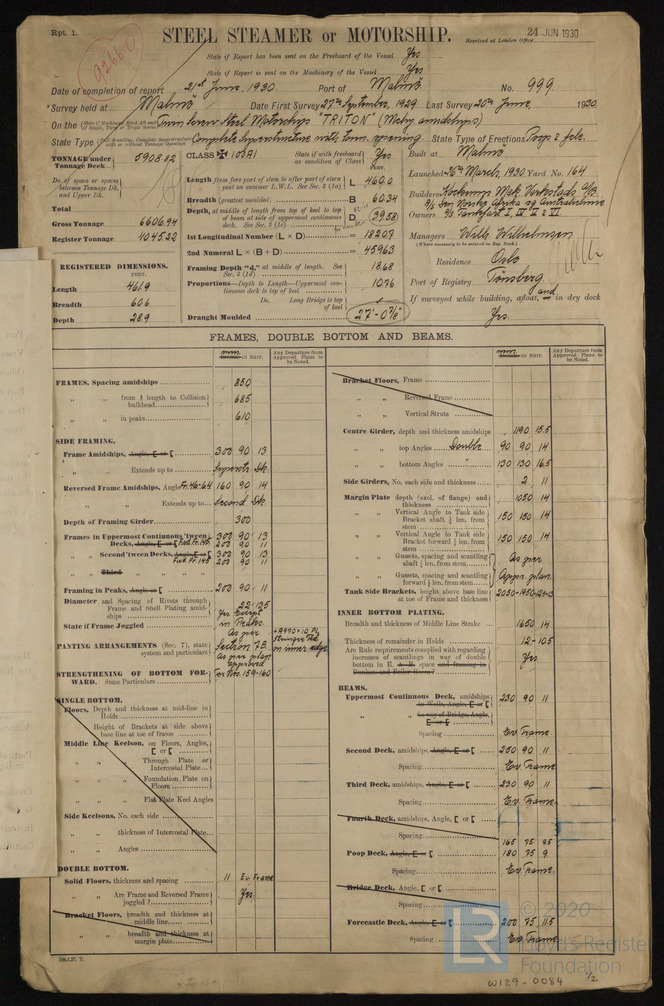 Rpt. 1.
STEEL STEAMER or MOTORSHIP.
Received at London Office 24 JUN 1930
92660
State if Report has been sent on the Freeboard of the Vessel Yes
State if Report is sent on the Machinery of the Vessel Yes
Date of completion of report 21st June, 1930. Port of Malmö No. 999
Survey held at Malmö Date First Survey 27th September, 1929 Last Survey 20th June, 1930
On the Twin Screw Steel Motorship "TRITON" (Mchy amidships)
State Type Complete Superstructure with tonn. opening State Type of Erections Poop & fcle.
TONNAGE under Tonnage Deck 5908.82
Do. of space or spaces between Tonnage Dk. and Upper Dk.
Total
Gross Tonnage 6606.94
Register Tonnage 4045.22
REGISTERED DIMENSIONS.
FEET.
Length 461.9
Breadth 60.6
Depth 28.9
CLASS ✠ 100A1 State if (with freeboard) as condition of Class Yes
Length from fore part of stem to after part of stern post on summer L.W.L. See Sec. 3 (1a) L 460.0
Breadth (greatest moulded) B 60.34
Depth, at middle of length from top of keel to top of beam at side of uppermost continuous deck. See Sec. 3 (1c) D 39.58
1st Longitudinal Number (L × D) = 18207
2nd Numeral L × (B + D) = 45963
Framing Depth "d," at middle of length. See Sec. 3 (1d) 18.68
Proportions—Depth to Length—Uppermost continuous deck to top of keel
Do. Long Bridge to top of keel
Draught Moulded 27'-0⅞"
Built at Malmö
Launched 8th March, 1930 Yard No. 164
Builders Kockums Mek. Verkstads A/B.
Owners
Managers Wilh. Wilhelmsen
(Where necessary to be entered in Reg. Book.)
Residence Oslo
Port of Registry Tönsberg
If surveyed while building, afloat, and in dry dock
Yes.
FRAMES, DOUBLE BOTTOM AND BEAMS.
mm. IN SHIP.
Any Departure from Approved Plans to be Noted.
FRAMES, Spacing amidships 830
" " from ⅕ length to Collision bulkhead 685
" " in peaks 610
SIDE FRAMING.
Frame Amidships, Angle, E or [ 300 90 13
" " Extends up to Superstr. Dk.
Reversed Frame Amidships, Angle Fr. 46-64 160 90 14
" " Extends up to Second Dk.
Depth of Framing Girder 300
Frames in Uppermost Continuous 'tween Decks, Angle, E or [ 300 90 13
Fwd Fr. 145 200 90 11
" " Second 'tween Decks, Angle, E or [ 300 90 13
Fwd Fr. 145 200 90 11
" " Third " "
Framing in Peaks, Angle or [ 200 90 11
Diameter and Spacing of Rivets through Frame and Shell Plating amidships
State if Frame Joggled Yes Except in Peaks.
PANTING ARRANGEMENTS (Sec. 7), state system and particulars As per Section F.B. As per plan approved
STRENGTHENING OF BOTTOM FORWARD. State Particulars
SINGLE BOTTOM.
Floors, Depth and thickness at mid-line in Holds
" Height of Brackets at side above base line at toe of frame
Middle Line Keelson, on Floors, Angles, [ or [
" " " Through Plate or Intercostal Plate
" " " Foundation Plate on Floors
" " " Flat Plate Keel Angles
Side Keelsons, No. each side
" " thickness of Intercostal Plate
" " Angles
DOUBLE BOTTOM.
Solid Floors, thickness and spacing 11 Ev. Frame
" " Are Frame and Reversed Frame joggled? Yes
Bracket Floors, breadth and thickness at middle line
" " breadth and thickness at margin plate
Bracket Floors, Frame
" " Reversed Frame
" " Vertical Struts
Centre Girder, depth and thickness amidships 1190 15.5
" " top Angles Double 90 90 14
" " bottom Angles " 130 130 16.5
Side Girders, No. each side and thickness 2 11
Margin Plate depth (excl. of flange) and thickness 1050 14
" " Vertical Angle to Tank side Bracket abaft ¼ len. from stem 150 150 14
" " Vertical Angle to Tank side Bracket forward ¼ len. from stem 150 150 14
" " Gussets, spacing and scantling abaft ¼ len. from stem As per
" " Gussets, spacing and scantling forward ¼ len. from stem Appr. plan.
Tank Side Brackets, height above base line at toe of Frame and thickness
INNER BOTTOM PLATING.
Breadth and thickness of Middle Line Strake 1650 14
Thickness of remainder in Holds 12 - 10.5
Are Rule requirements complied with regarding increases of scantlings in way of double bottom in E. & B. space and framing in Bunkers and Boiler Room? Yes
BEAMS.
Uppermost Continuous Deck, amidships 230 90 11
" " in Wells, Angle, E or [
" " in way of Bridge, Angle, E or [
Spacing Ev. Frame
Second Deck, amidships, Angle, E or [ 250 90 11
Spacing Ev. Frame
Third Deck, amidships, Angle, E or [ 230 90 11
Spacing Ev. Frame
Fourth Deck, amidships, Angle, [ or [
Spacing
Poop Deck, Angle, E or [ 165 75 9.5
180 75 9
Spacing Ev. Frame.
Bridge Deck, Angle, [ or [
Spacing
Forecastle Deck, Angle, E or [ 200 75 11.5
Spacing Ev. Frame
© 2020
Lloyd's Register
Foundation
LR
W129-0084 1/2